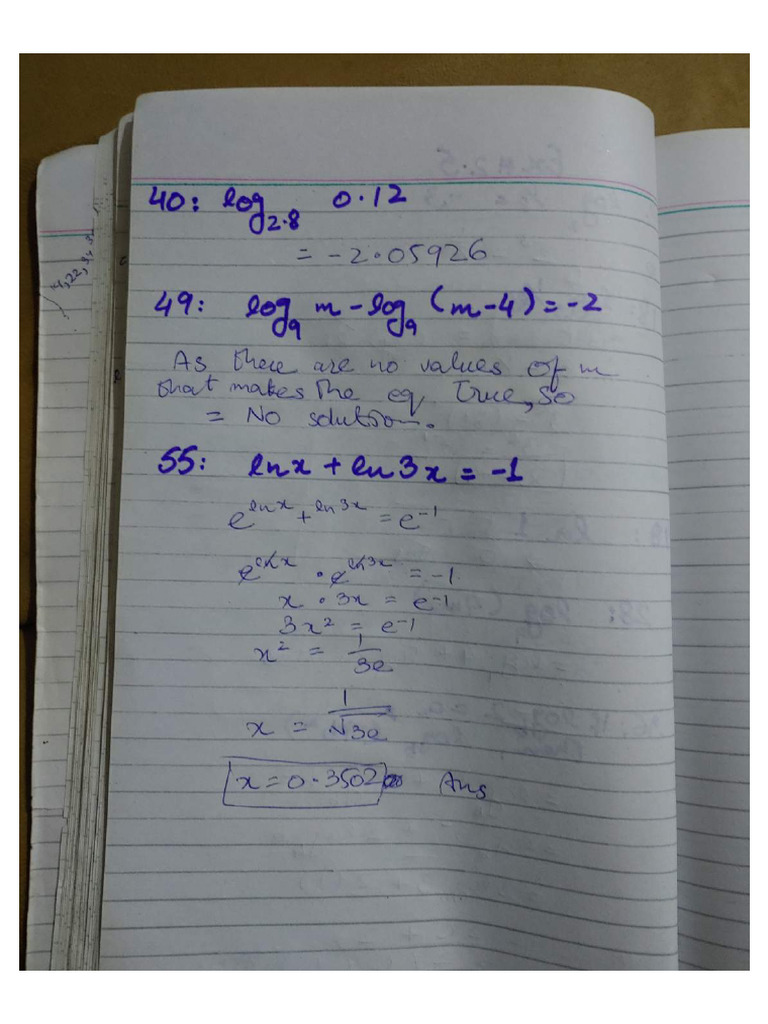 40: log₂.₈ 0.12
= -2.05926
49: log₉ m - log₉ (m-4) = -2
As there are no values of m
that makes the eq True, so
= No solution.
55: ln x + ln 3x = -1
e^ln x + ln 3x = e⁻¹
e^ln x · e^ln 3x = -1
x · 3x = e⁻¹
3x² = e⁻¹
x² = 1/3e
x = 1/√3e
x = 0.3502 Ans